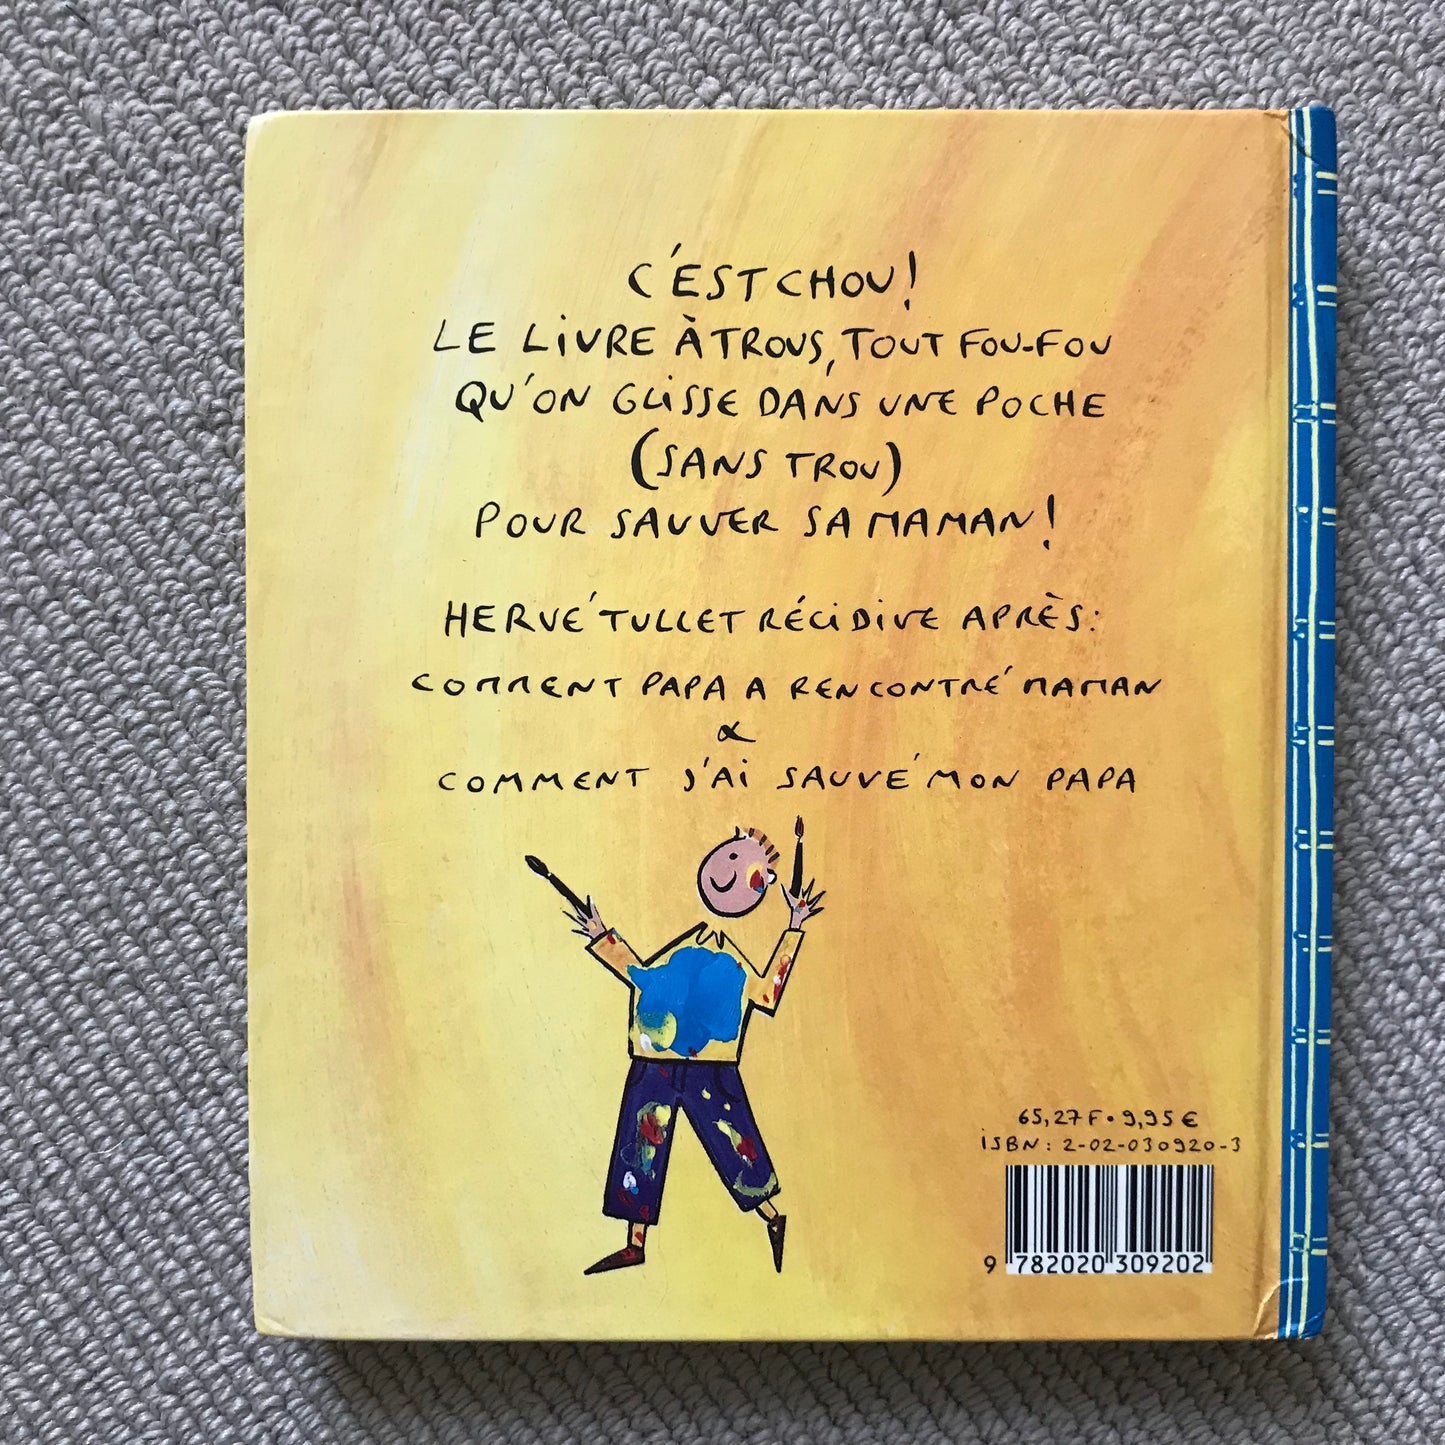 C'EST CHOU!
LE LIVRE À TROUS, TOUT FOU-FOU
QU'ON GLISSE DANS UNE POCHE
(SANS TROU)
POUR SAUVER SA MAMAN!
HERVÉ TULLET RÉCIDIVE APRÈS:
COMMENT PAPA A RENCONTRÉ MAMAN
&
COMMENT J'AI SAUVÉ MON PAPA
65,27 F • 9,95 €
ISBN: 2-02-030920-3
9 782020 309202